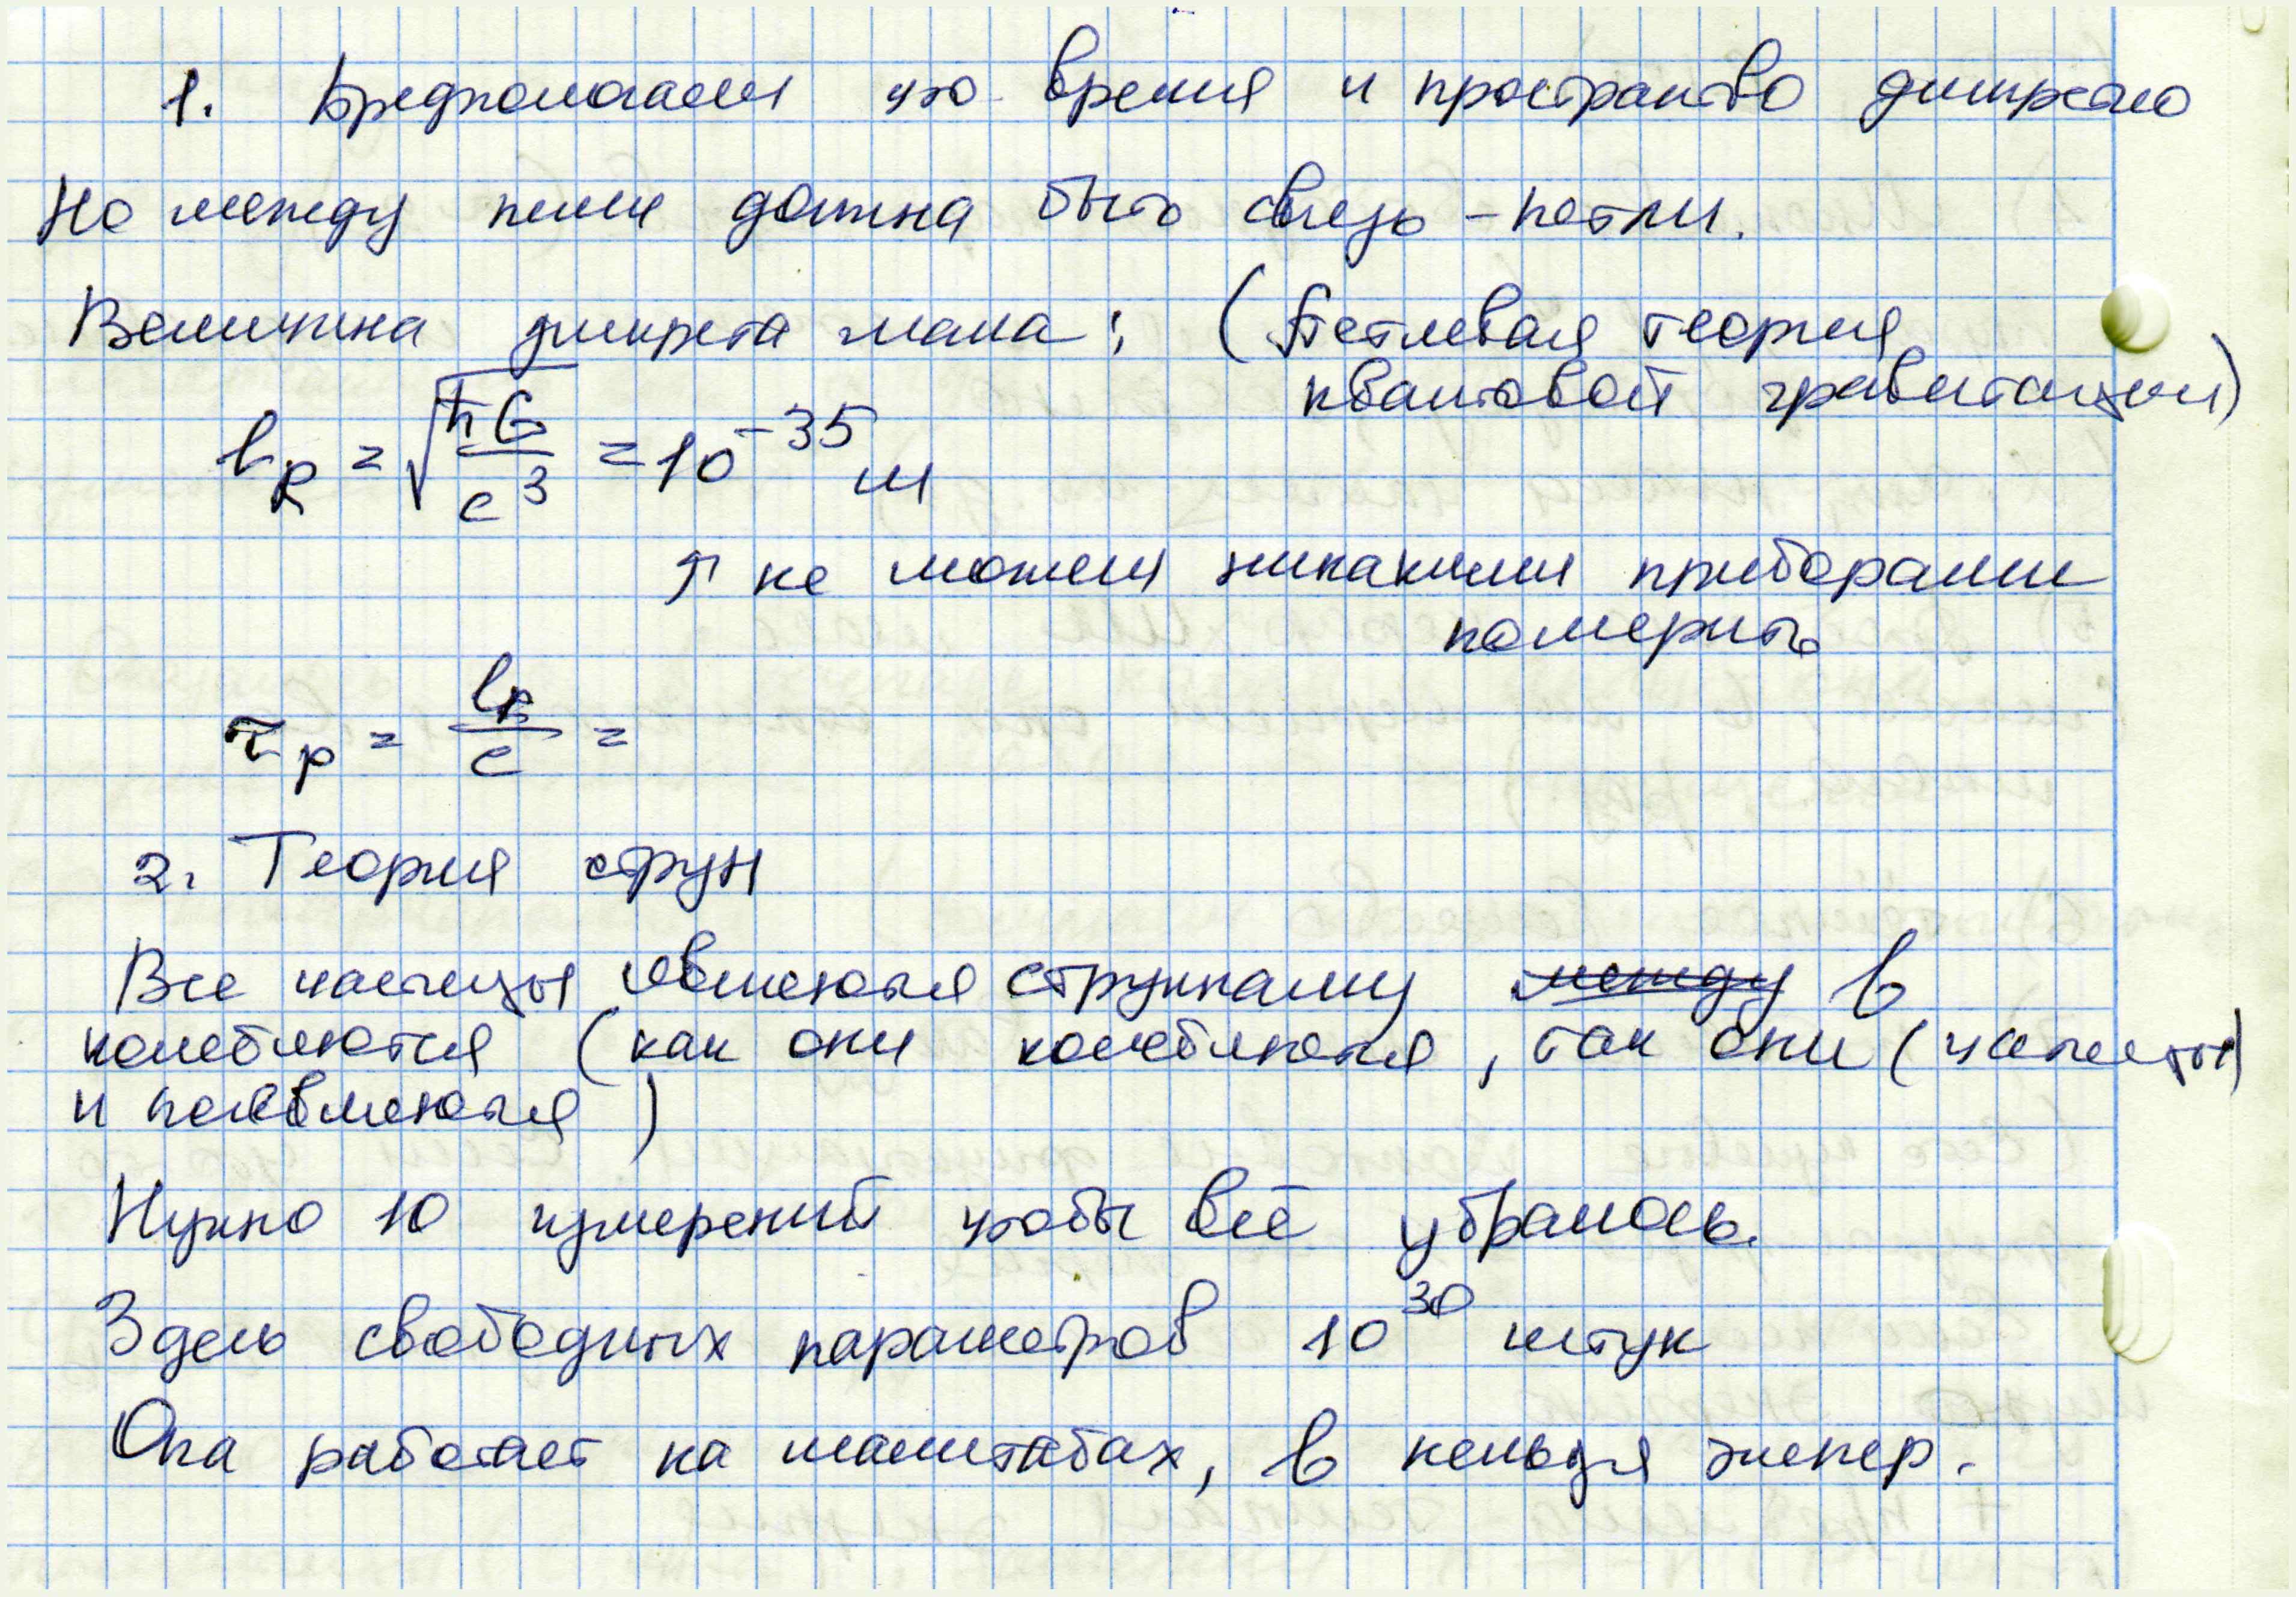 1. Предполагаем что время и пространство дискретно
Но между ними должна быть связь – петли.
Величина дискрета мала: (Петлевая теория
квантовой гравитации)
l_p = √(ħG/c³) = 10⁻³⁵ м
↑ не можем никакими приборами
померить
τ_p = l_p/c =
2. Теория струн
Все частицы являются струнками в
колеблются (как они колеблются, так они (частицы)
и появляются)
Нужно 10 измерений чтобы всё убралось.
Здесь свободных параметров 10³⁰ штук
Она работает на масштабах, в нельзя экспер.